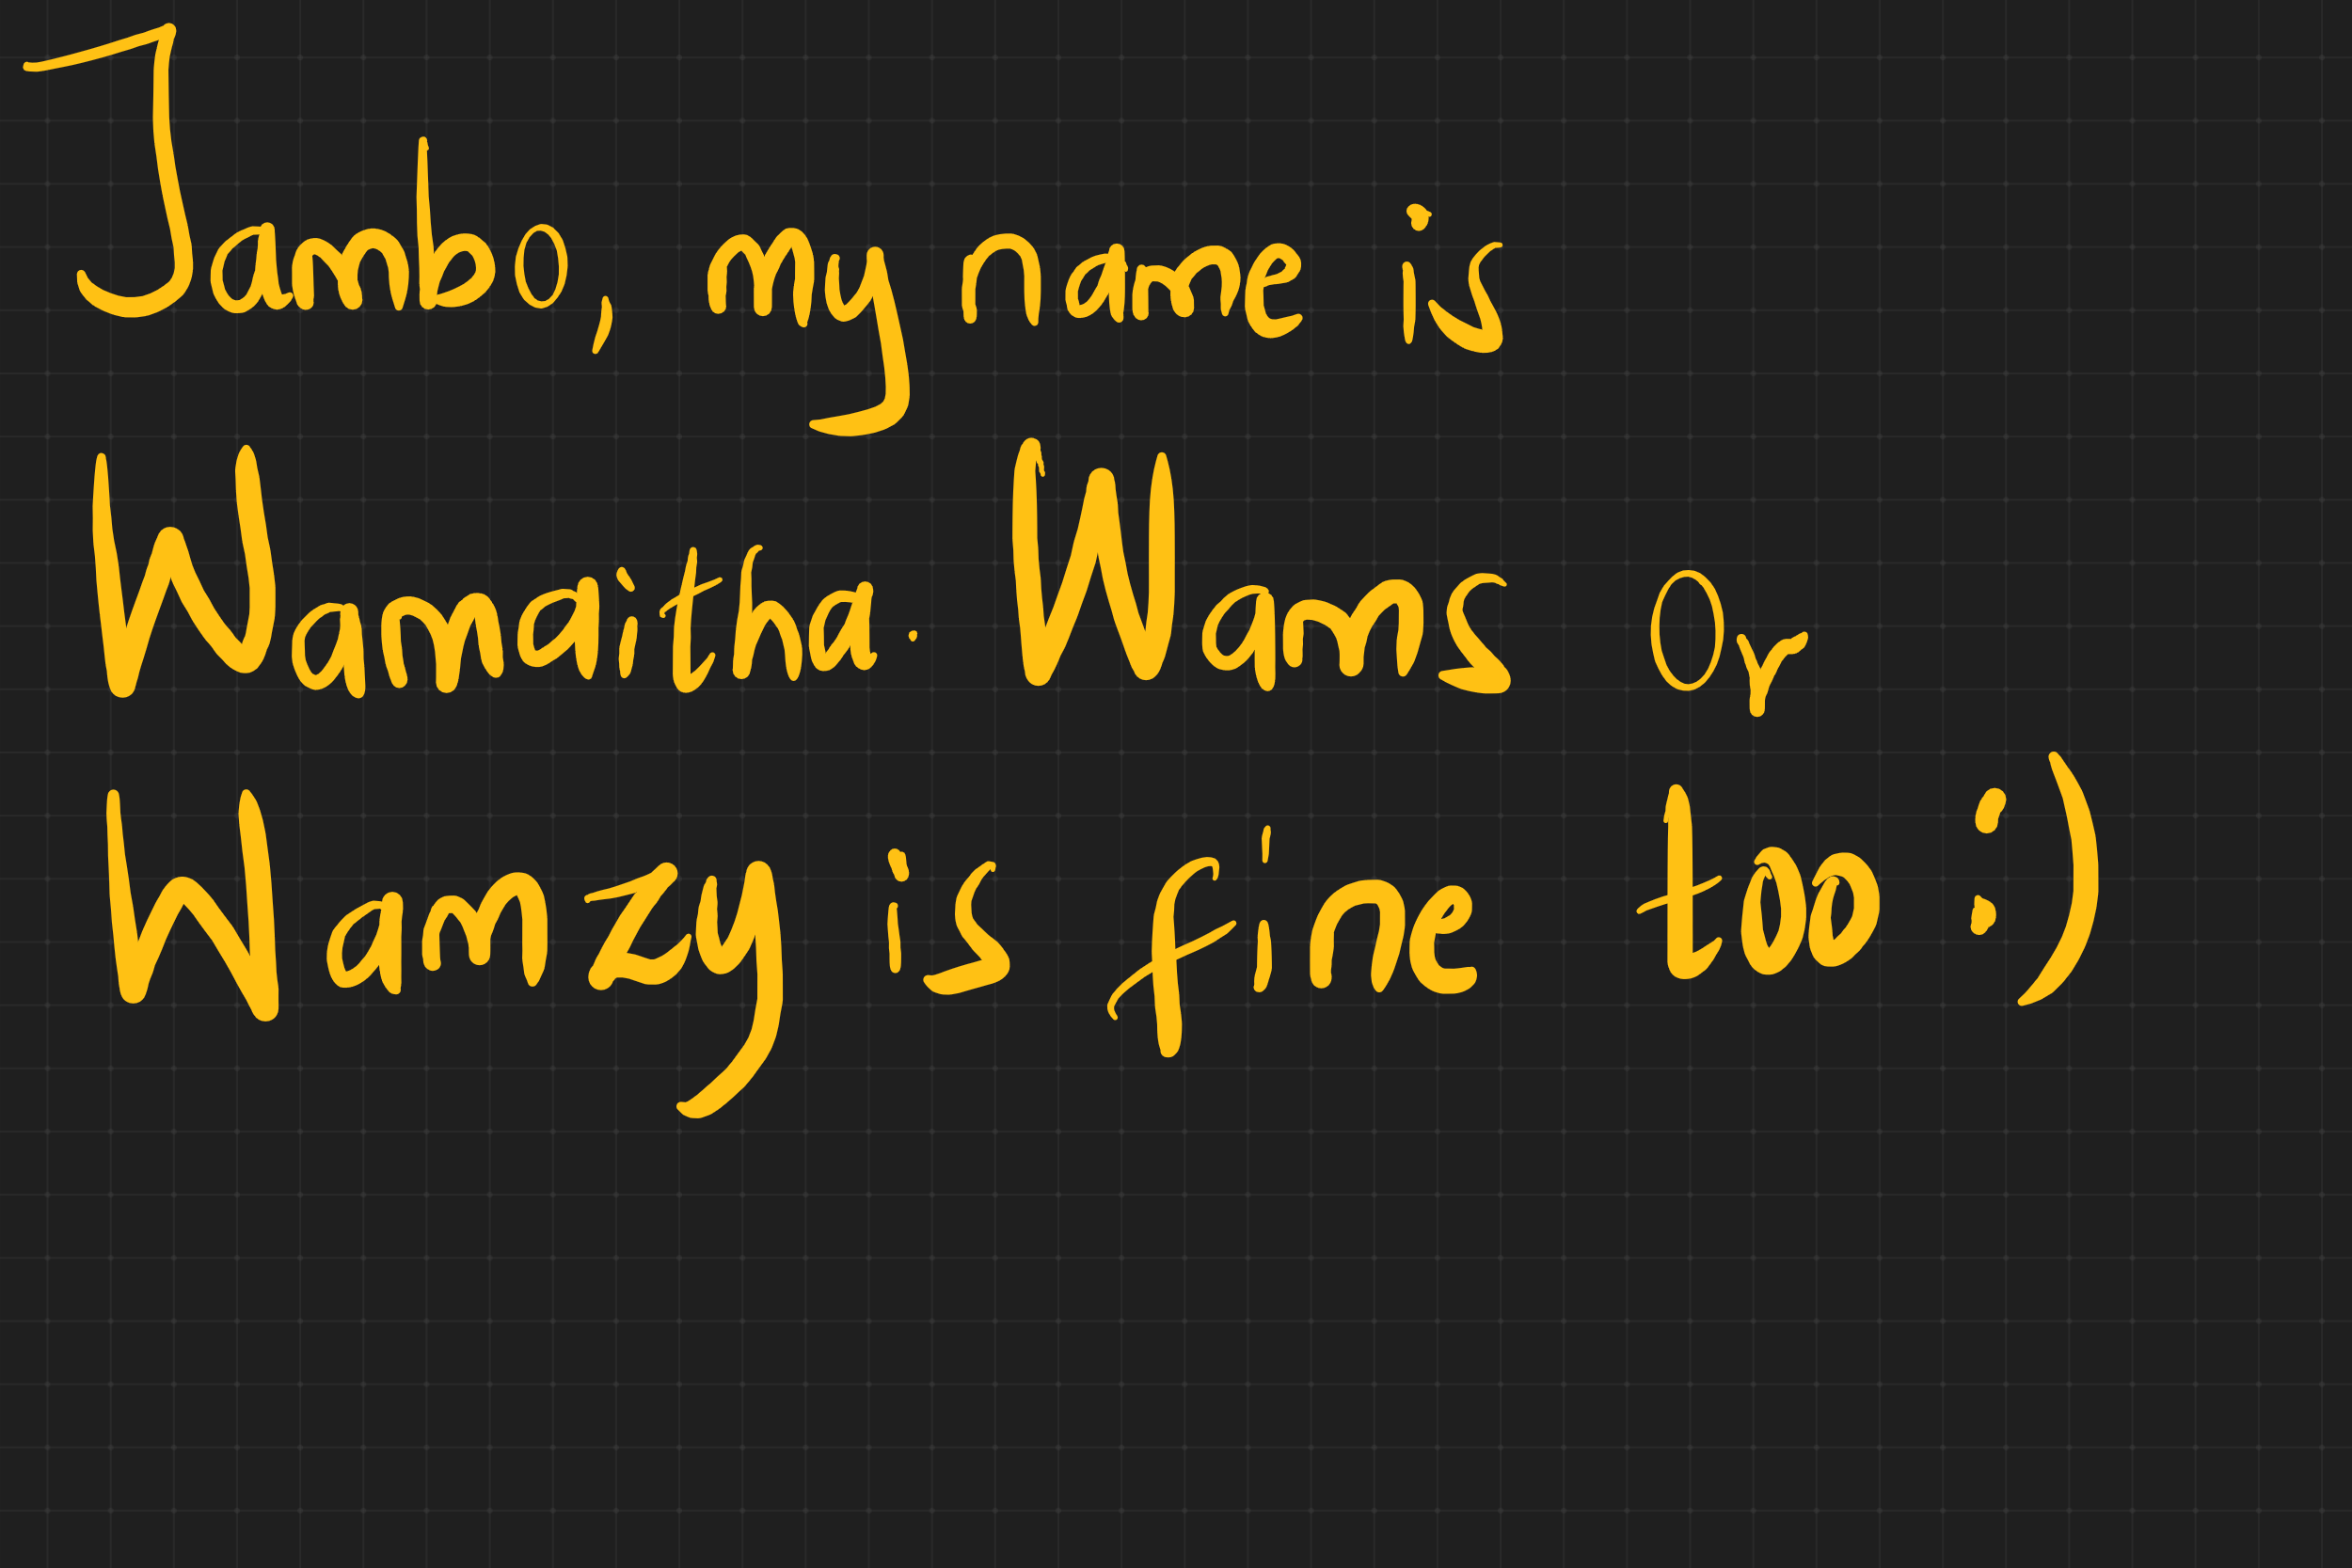 Jambo, my name is
Wamaitha. Wams or
Wamzy is fine too :)